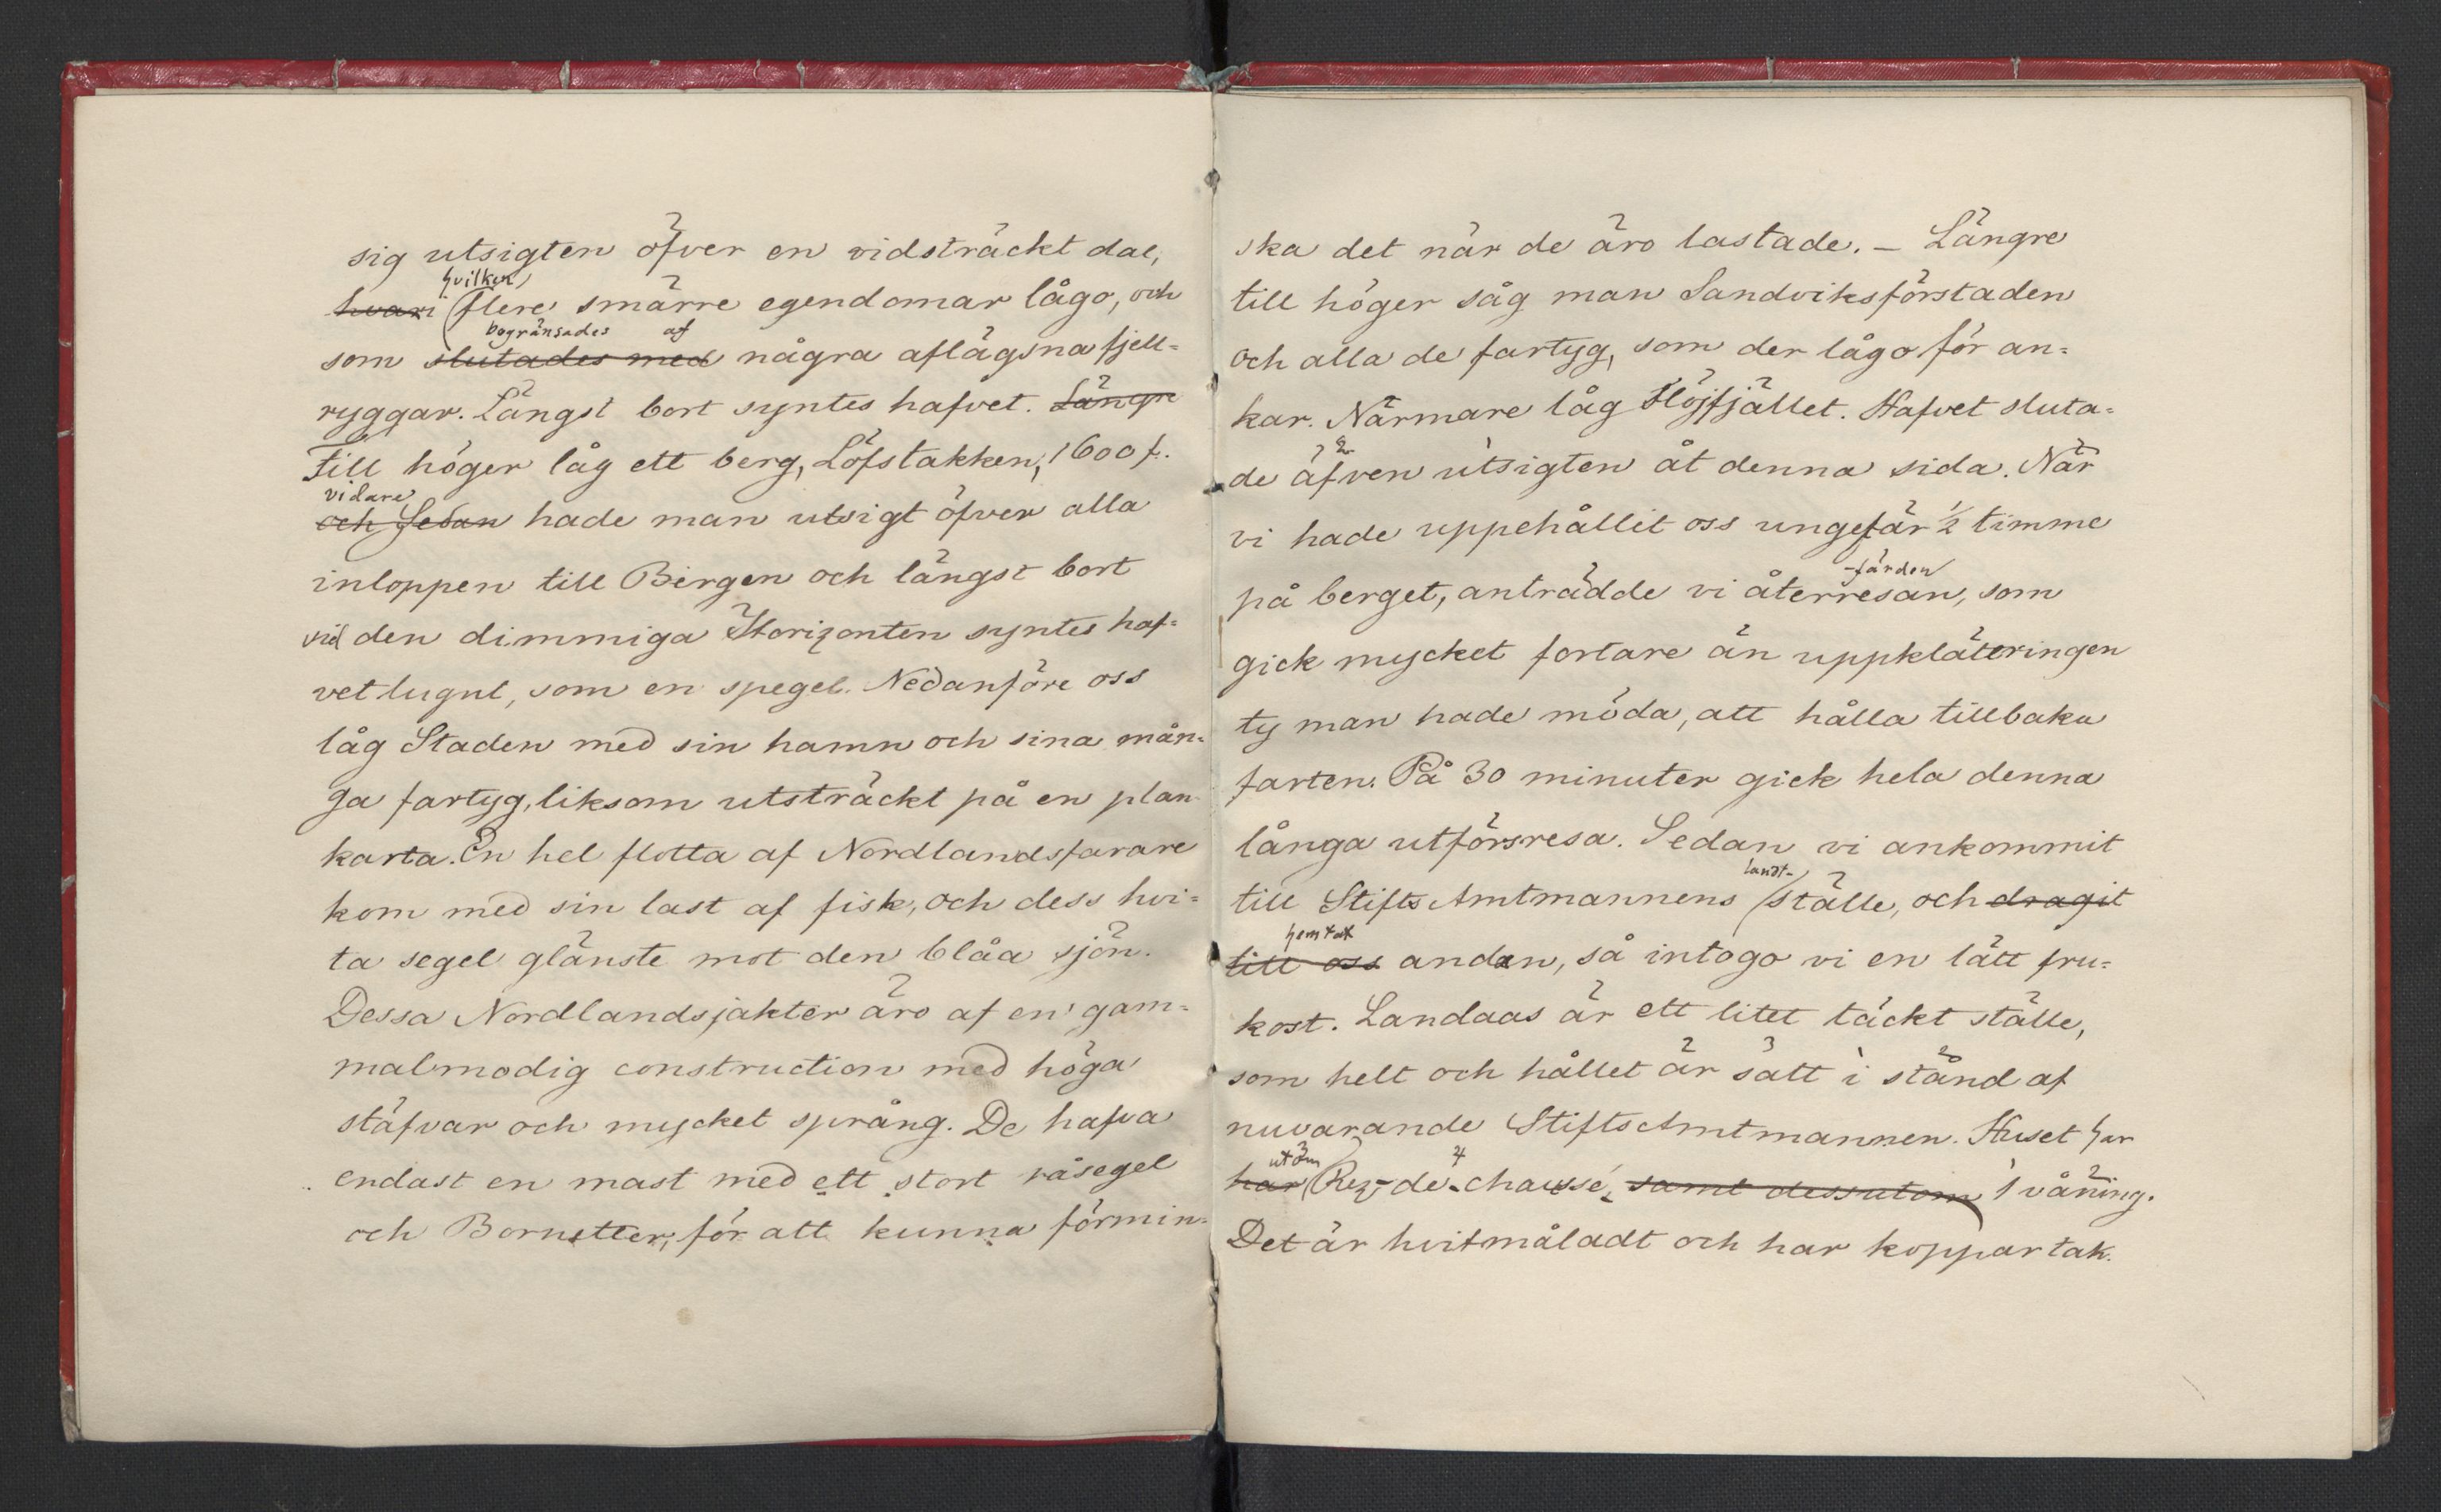 sig utsigten öfver en vidsträckt dal,
hvilken
hvari flere smärre egendomar lågo, och
begränsades af
som slutades med några aflägsna fjell=
ryggar. Längst bort syntes hafvet. Längre
Till höger låg ett berg, Löfstakken, 1600 f.
vidare
och Sedan hade man utsigt öfver alla
inloppen till Bergen och längst bort
vid den dimmiga Horizonten syntes haf=
vet lugnt, som en spegel. Nedanföre oss
låg Staden med sin hamn och sina mån=
ga fartyg, liksom utsträckt på en plan
karta. En hel flotta af Nordlandsfarare
kom med sin last af fisk, och dess hvi=
ta segel glänste mot den blåa sjön.
Dessa Nordlandsjakter äro af en gam=
malmodig construction med höga
stäfvar och mycket språng. De hafva
endast en mast med ett stort råsegel
och Bornetter, för att kunna förmin=
ska det när de äro lastade. – Längre
till höger såg man Sandviksförstaden
och alla de fartyg, som der lågo för an=
kar. Närmare låg Flöjfjället. Hafvet sluta=
de äfven utsigten åt denna sida. När
vi hade uppehållit oss ungefär ½ timme
-färden
på berget, anträdde vi återresan, som
gick mycket fortare än uppklätteringen
ty man hade möda, att hålla tillbaka
farten. På 30 minuter gick hela denna
långa utförsresa. Sedan vi ankommit
landt-
till Stifts Amtmannens ställe, och dragit
hemtat
till oss andan, så intogo vi en lätt fru=
kost. Landaas är ett litet täckt ställe,
som helt och hållet är satt i stånd af
nuvarande StiftsAmtmannen. Huset har
utom
har Rez-de-chaussé, samt dessutom 1 våning.
Det är hvitmåladt och har koppartak.